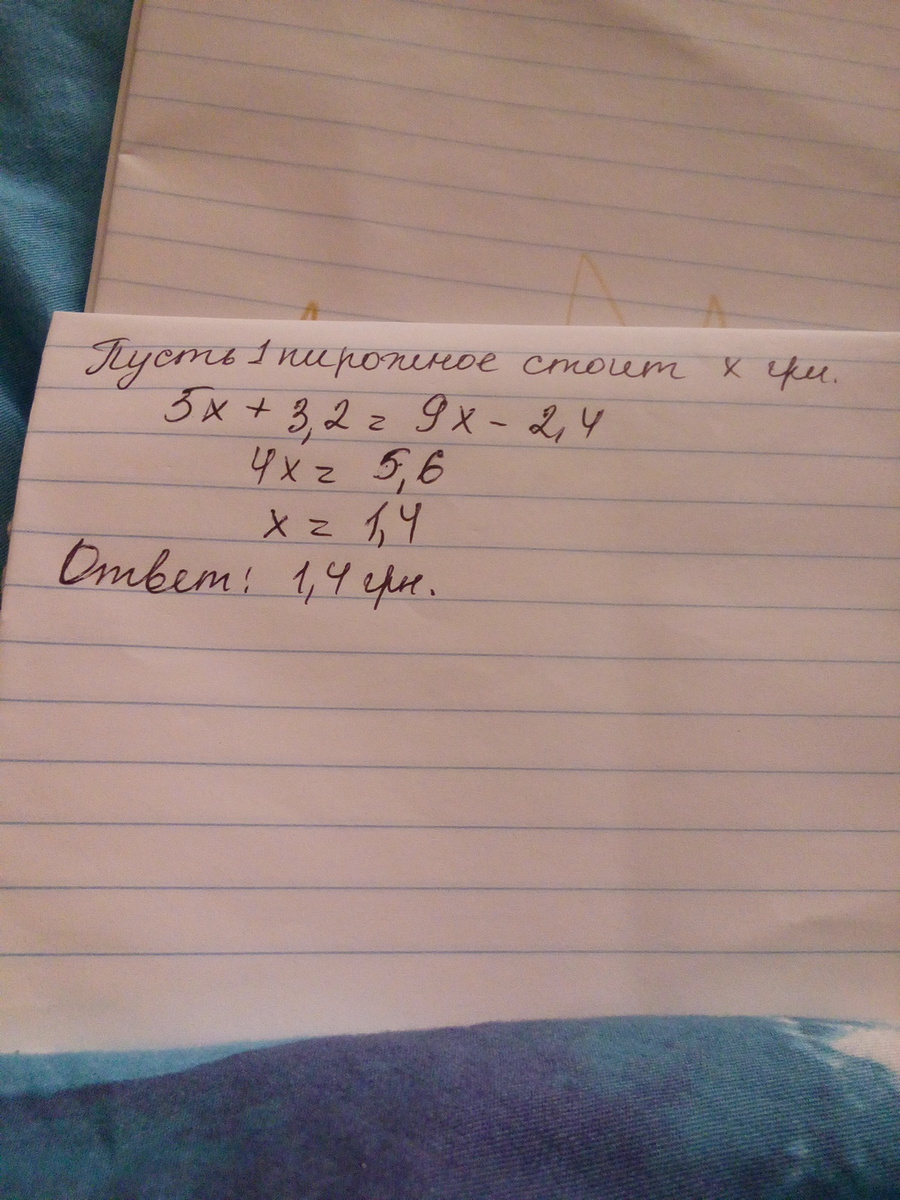 Пусть 1 пирожное стоит x грн.
5x + 3,2 = 9x - 2,4
4x = 5,6
x = 1,4
Ответ: 1,4 грн.